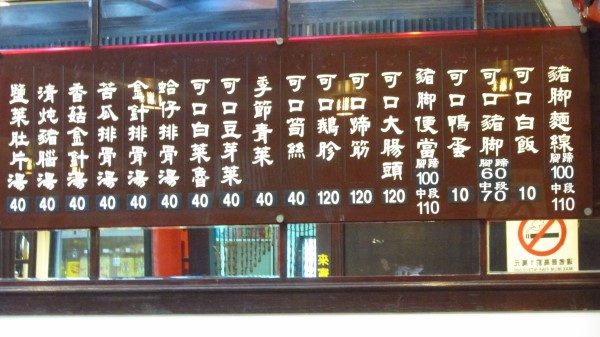 豬腳麵線 腳蹄100 中段110
可口白飯 10
可口豬腳 腳蹄60 中段70
可口鴨蛋 10
豬腳便當 腳蹄100 中段110
可口大腸頭 120
可口蹄筋 120
可口鵝胗 120
可口筍絲 40
季節青菜 40
可口豆芽菜 40
可口白菜魯 40
蛤仔排骨湯 40
金針排骨湯 40
苦瓜排骨湯 40
香菇金針湯 40
清炖豬腦湯 40
鹽菜肚片湯 40
來賓